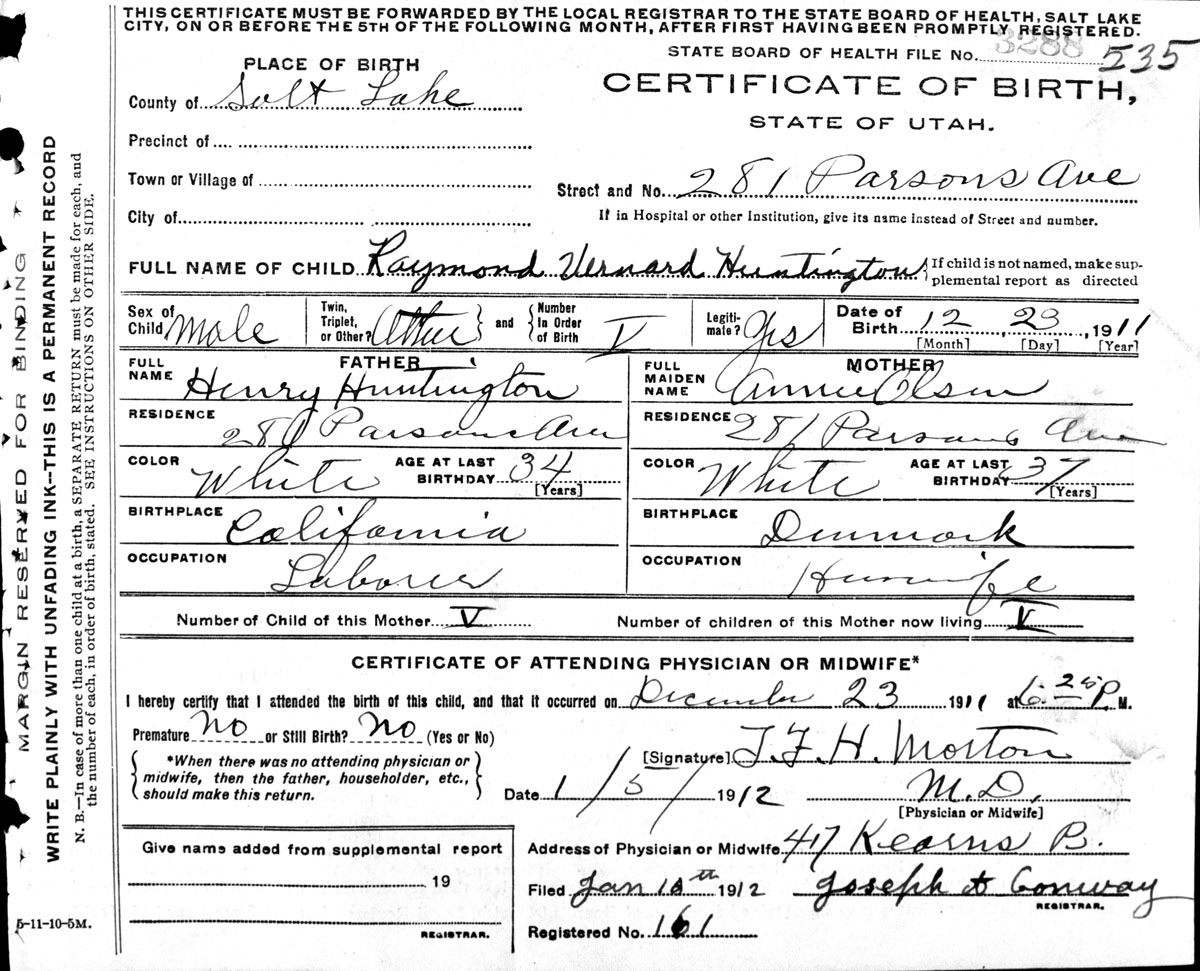 THIS CERTIFICATE MUST BE FORWARDED BY THE LOCAL REGISTRAR TO THE STATE BOARD OF HEALTH, SALT LAKE
CITY, ON OR BEFORE THE 5TH OF THE FOLLOWING MONTH, AFTER FIRST HAVING BEEN PROMPTLY REGISTERED.
STATE BOARD OF HEALTH FILE No. 3288 535
PLACE OF BIRTH
CERTIFICATE OF BIRTH,
County of Salt Lake
STATE OF UTAH.
Precinct of
Town or Village of
Street and No. 281 Parsons Ave
City of
If in Hospital or other Institution, give its name instead of Street and number.
FULL NAME OF CHILD Raymond Vernard Huntington { If child is not named, make sup-
plemental report as directed
Sex of Child Male Twin, Triplet, or Other? Other and Number In Order of Birth V Legiti-mate? Yes Date of Birth 12 23 1911
[Month] [Day] [Year]
FATHER MOTHER
FULL NAME Henry Huntington FULL MAIDEN NAME Annie Olsen
RESIDENCE 281 Parsons Ave RESIDENCE 281 Parsons Ave
COLOR White AGE AT LAST BIRTHDAY 34 [Years] COLOR White AGE AT LAST BIRTHDAY 37 [Years]
BIRTHPLACE California BIRTHPLACE Denmark
OCCUPATION Laborer OCCUPATION Housewife
Number of Child of this Mother V Number of children of this Mother now living V
CERTIFICATE OF ATTENDING PHYSICIAN OR MIDWIFE*
I hereby certify that I attended the birth of this child, and that it occurred on December 23 1911 at 6:25 P. M.
Premature No or Still Birth? No (Yes or No)
[Signature] T. F. H. Morton
*When there was no attending physician or
midwife, then the father, householder, etc.,
should make this return.
Date 1/5/1912 M.D.
[Physician or Midwife]
Give name added from supplemental report
19
REGISTRAR.
Address of Physician or Midwife 417 Kearns B.
Filed Jan 10th 1912 Joseph A Conway
REGISTRAR.
Registered No. 161
5-11-10-5M.
MARGIN RESERVED FOR BINDING
WRITE PLAINLY WITH UNFADING INK--THIS IS A PERMANENT RECORD
N. B.--In case of more than one child at a birth, a SEPARATE RETURN must be made for each, and
the number of each, in order of birth, stated. SEE INSTRUCTIONS ON OTHER SIDE.